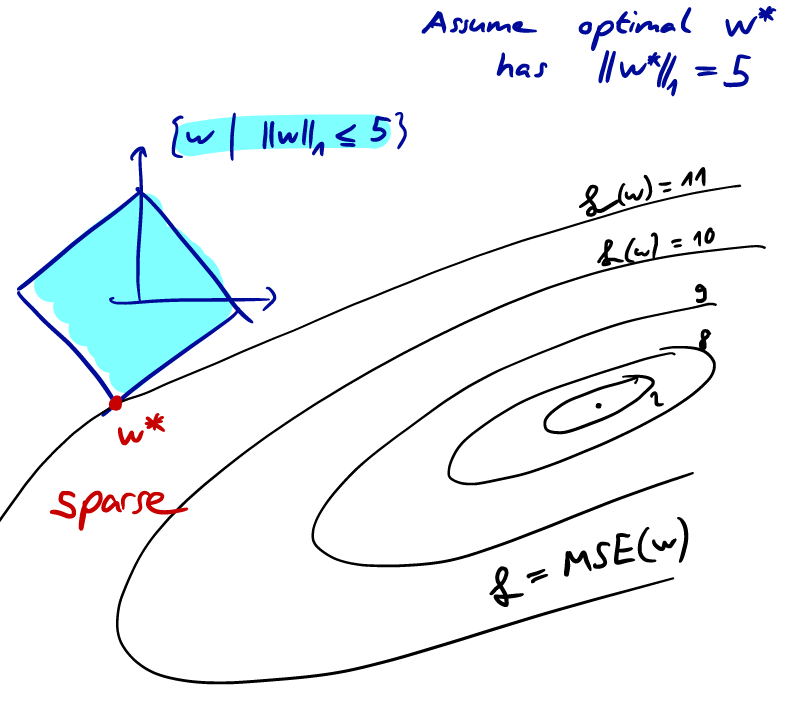 Assume optimal w*
has ||w*||₁ = 5
{w | ||w||₁ ≤ 5}
L(w) = 11
L(w) = 10
9
8
w*
sparse
L = MSE(w)